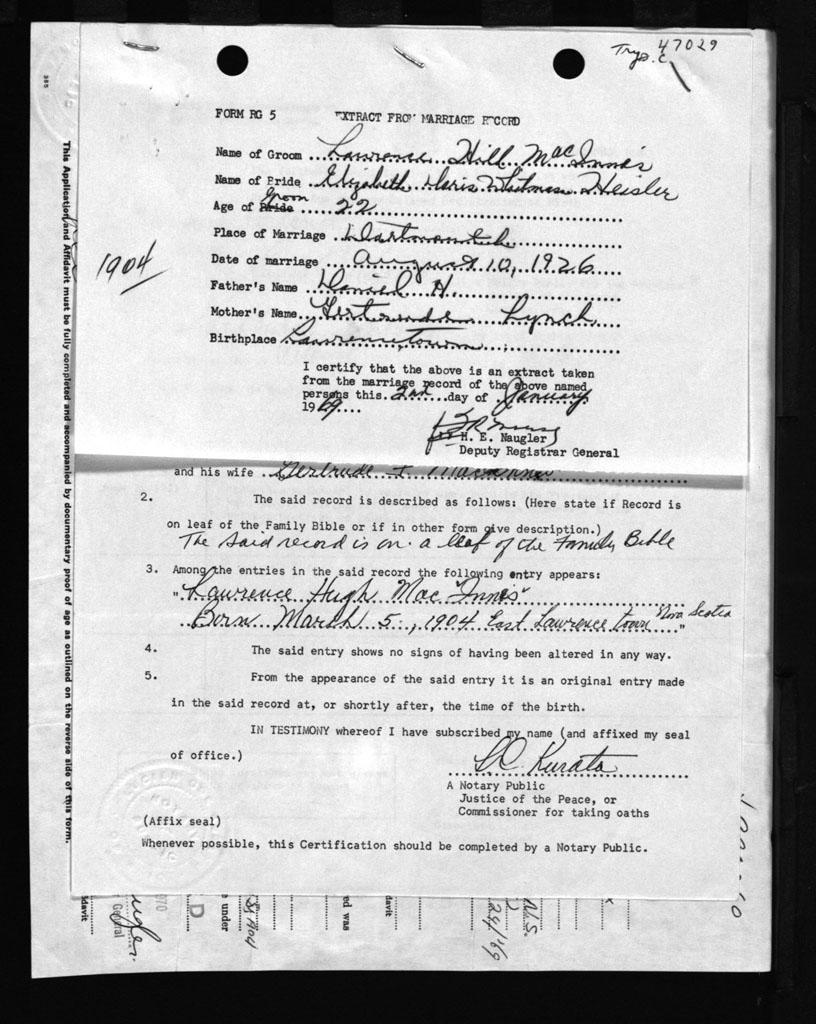 47029
FORM RG 5 EXTRACT FROM MARRIAGE RECORD
Name of Groom ... Lawrence Hill MacInnis
Name of Bride ... Elizabeth Doris Whitman Heisler
Groom
Age of Bride ... 22
Place of Marriage ... Dartmouth
Date of marriage ... August 10, 1926
1904
Father's Name ... Daniel H.
Mother's Name ... Gertrude Lynch
Birthplace Lawrencetown
I certify that the above is an extract taken
from the marriage record of the above named
persons this 2nd day of January
1969
for H. E. Naugler
Deputy Registrar General
and his wife Gertrude F MacInnis
2. The said record is described as follows: (Here state if Record is
on leaf of the Family Bible or if in other form give description.)
The said record is on a leaf of the Family Bible
3. Among the entries in the said record the following entry appears:
"Lawrence Hugh Mac Innis"
Born March 5, 1904 East Lawrence town Nova Scotia"
4. The said entry shows no signs of having been altered in any way.
5. From the appearance of the said entry it is an original entry made
in the said record at, or shortly after, the time of the birth.
IN TESTIMONY whereof I have subscribed my name (and affixed my seal
of office.)
Kurata
A Notary Public
Justice of the Peace, or
Commissioner for taking oaths
(Affix seal)
Whenever possible, this Certification should be completed by a Notary Public.
This Application and Affidavit must be fully completed and accompanied by documentary proof of age as outlined on the reverse side of this form.
davit
General
970
D
e under
1904
ed was
davit
24/'69
N.S.